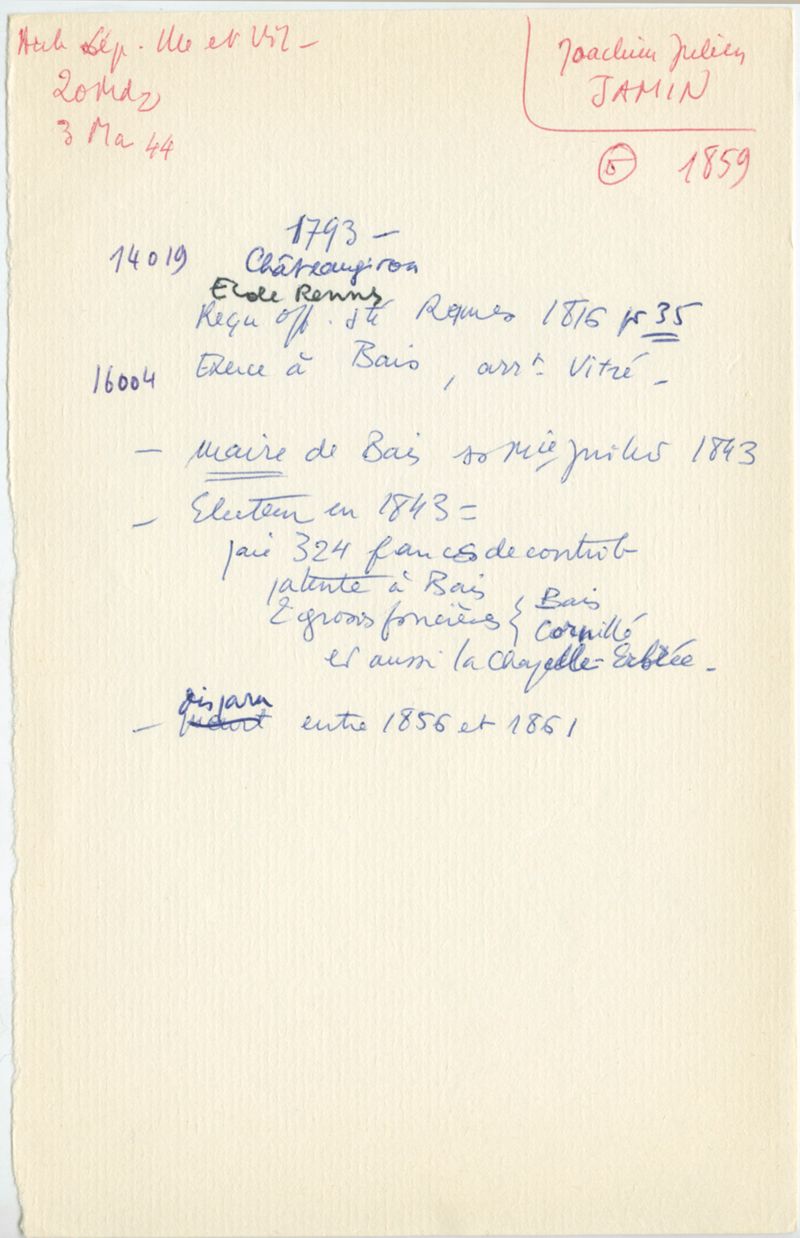 Arch Dép. Ille et Vil-
20 Md2
3 Ma 44
Joachim Julien
JAMIN
1859
1793 -
14019 Châteaugiron
Ec de Rennes
Reçu off. sté Rennes 1816 pr 35
16004 Exerce à Bais, arrt Vitré -
- maire de Bais juillet 1843
- Electeur en 1843 =
paie 324 francs de contrib
patente à Bais
2 grosses foncières { Bais
Cornillé
et aussi la Chapelle-Erbrée -
disparu
- entre 1856 et 1861